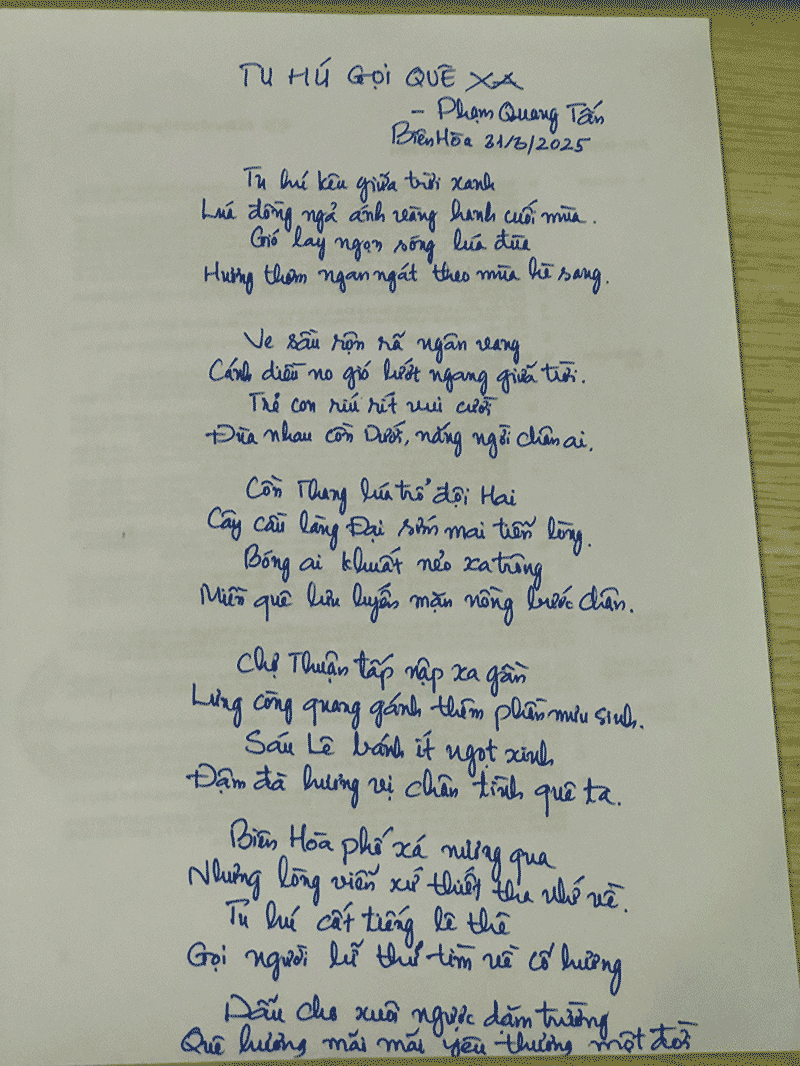 TU HÚ GỌI QUÊ XA
- Phạm Quang Tấn
Biên Hòa 31/5/2025
Tu hú kêu giữa trời xanh
Lúa đồng ngả ánh vàng hanh cuối mùa.
Gió lay ngọn sóng lúa đùa
Hương thơm ngan ngát theo mùa hè sang.
Ve sầu rộn rã ngân vang
Cánh diều no gió lướt ngang giữa trời.
Trẻ con ríu rít vui cười
Đùa nhau cồn Dưới, nắng ngời chân ai.
Cồn Thang lúa trổ đội Hai
Cây cầu làng Đại sớm mai tiễn lòng.
Bóng ai khuất nẻo xa trông
Miền quê lưu luyến mặn nồng bước chân.
Chợ Thuận tấp nập xa gần
Lưng còng quang gánh thêm phần mưu sinh.
Sáu Lê bánh ít ngọt xinh
Đậm đà hương vị chân tình quê ta.
Biên Hòa phố xá nương qua
Nhưng lòng viễn xứ thiết tha nhớ về.
Tu hú cất tiếng lê thê
Gọi người lữ thứ tìm về cố hương
Dẫu cho xuôi ngược dặm trường
Quê hương mãi mãi yêu thương một đời